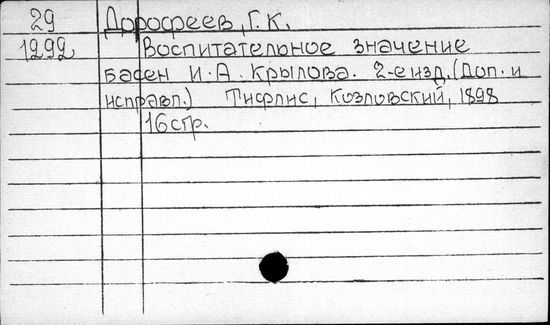 29 Дорофеев, Г. К.
1292 Воспитательное значение
басен И. А. Крылова. 2-е изд. (Доп. и
исправл.) Тифлис, Козловский, 1898
16 стр.